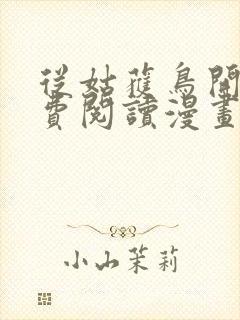 從姑蒦鳥開
費閱讀漫畫
小山茉莉